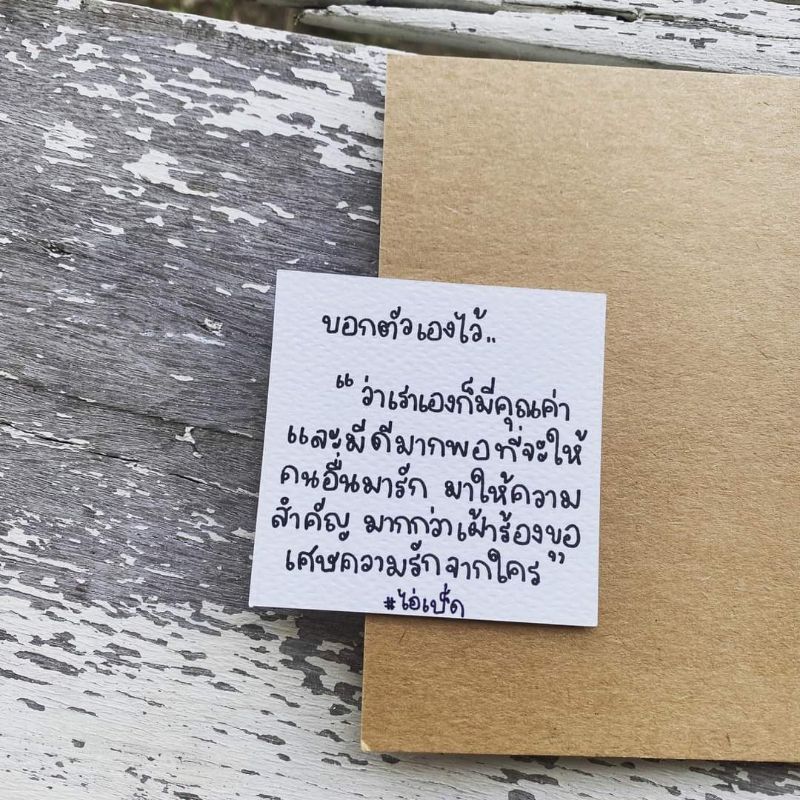 บอกตัวเองไว้..
“ ว่าเราเองก็มีคุณค่า
และมีดีมากพอที่จะให้
คนอื่นมารัก มาให้ความ
สำคัญ มากกว่าเฝ้าร้องขอ
เศษความรักจากใคร ”
#ไอ่เป็ด